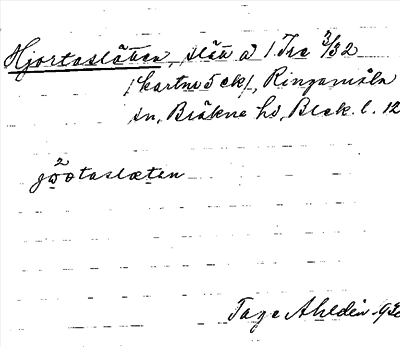 Hjortaslätten, slätt å 1 Tra 3/32
/kartne 5 ek/, Ringamåla
sn, Bräkne hd, Blek. l. 12
2
jwotaslætan
Tage Ahldén 193